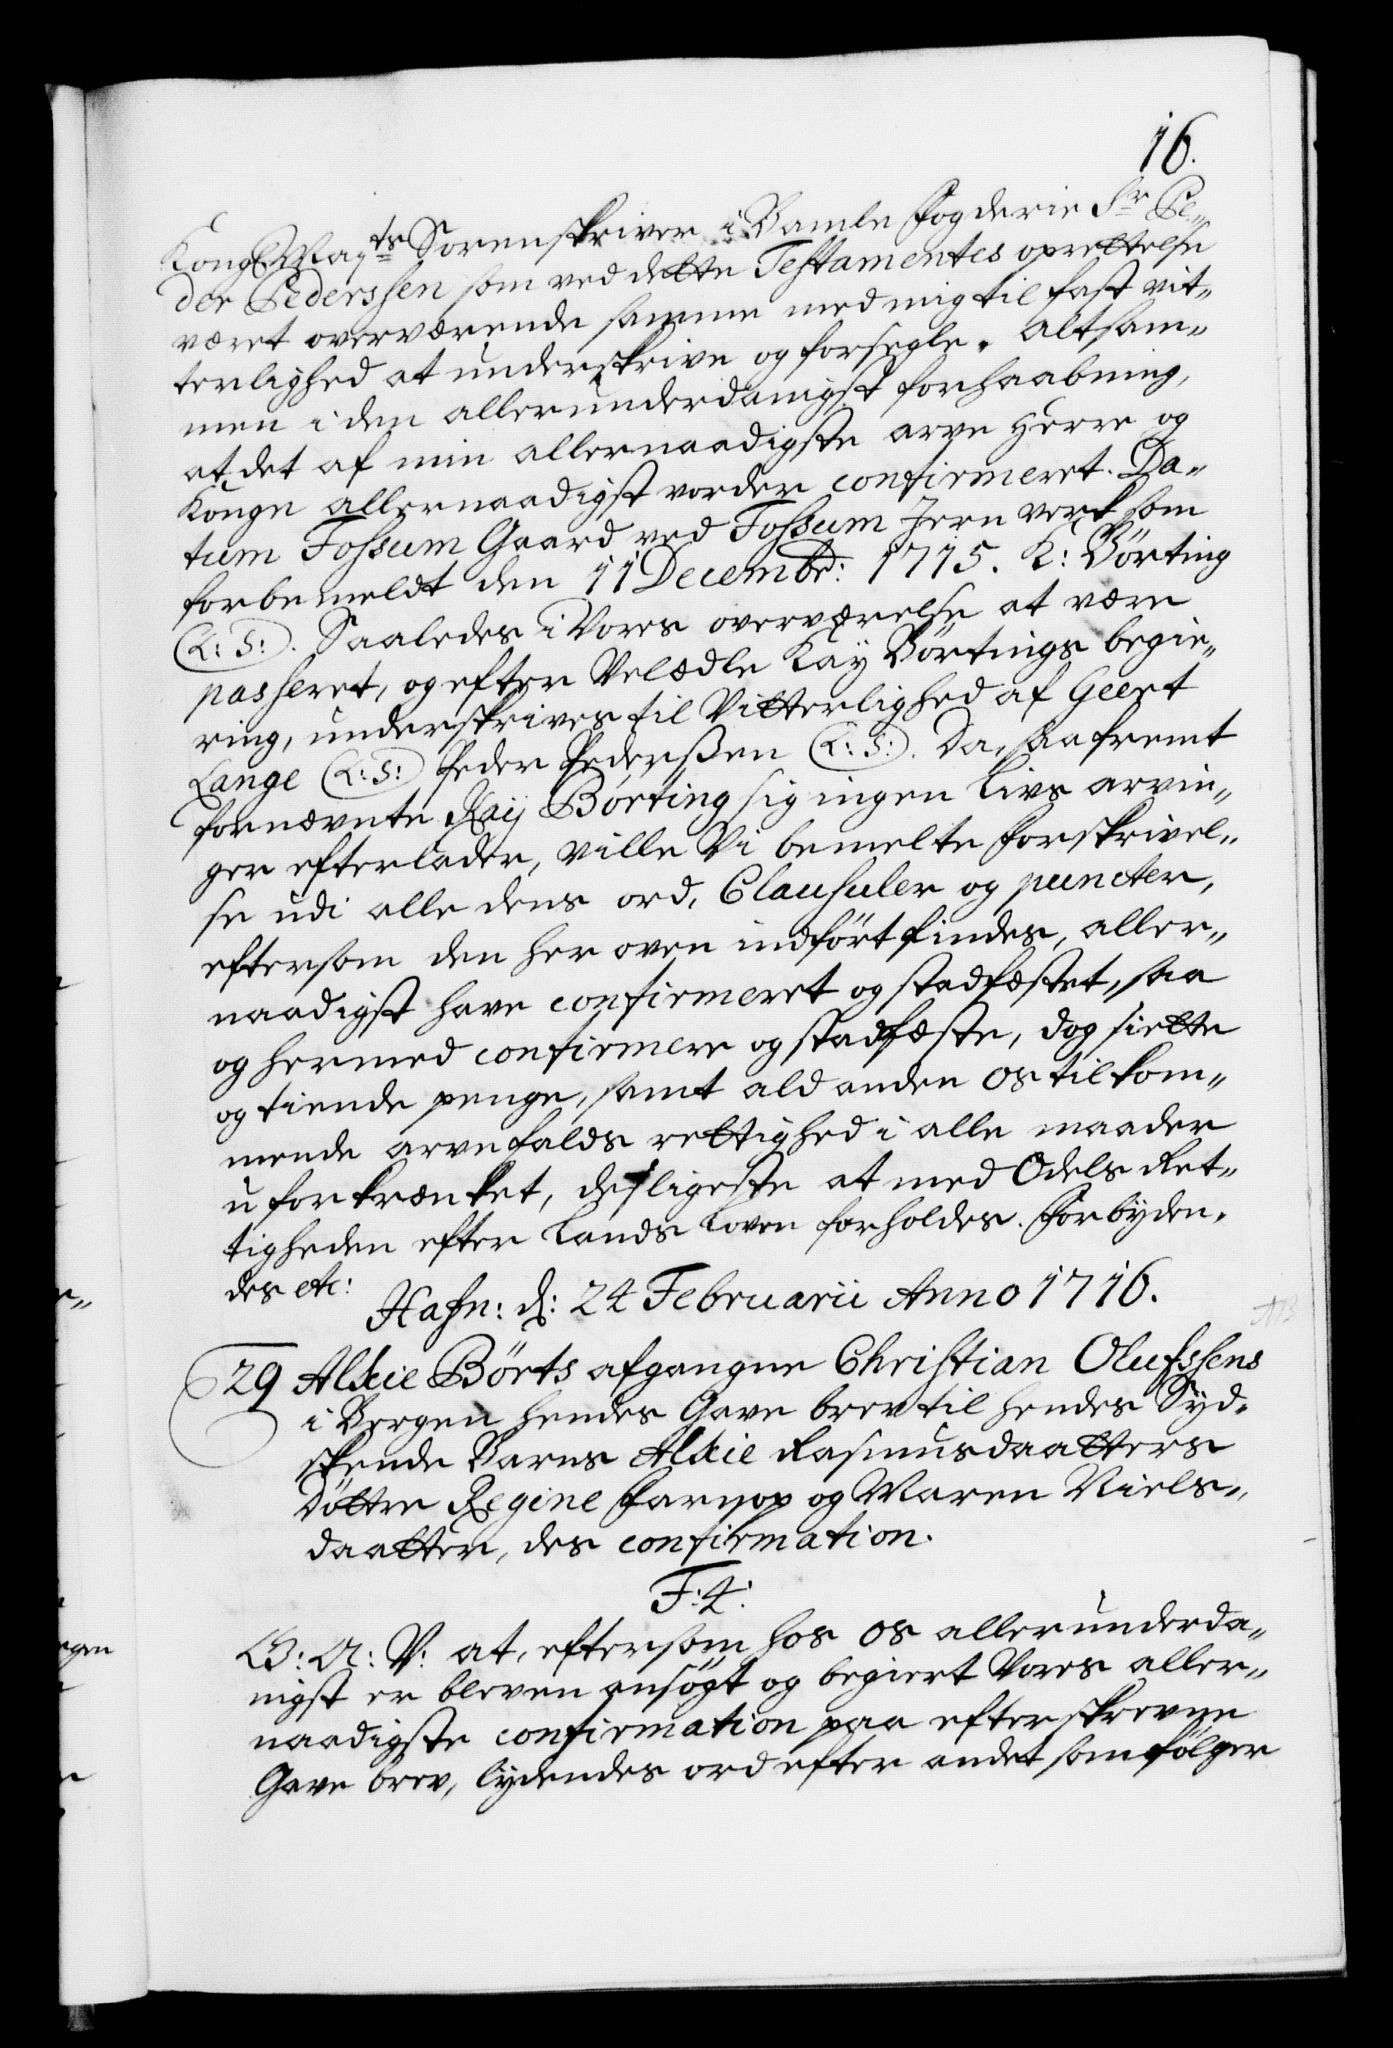 16.
Kong: Mayts Sorenskriver i Bamle Fogderie Sr Pe„
der Pederssen som ved dette Testamentes oprettelse
været overværende samme med mig til fast vit„
terlighed at underskrive og forsegle. Altsam„
men i den allerunderdanigst forhaabning,
at det af min allernaadigste arve Herre og
Konge allernaadigst vorder confirmeret. Da„
tum Fossum Gaard ved Fossum Jern verk som
forbemeldt den 11 Decembr: 1715. K: Börting
(L: S:). Saaledes i Vores overværelse at være
passeret, og efter Velædle Kaÿ Börtings begie„
ring, underskrives til Vitterlighed af Geert
Lange (L: S:) Peder Pederßen (L: S:). Da, saafremt
fornævnte Kaij Börting sig ingen Livs arvin„
ger efterlader, Ville Vi bemelte forskrivel„
se udi alle dens ord, Clausuler og puncter,
eftersom den her oven indført findes, aller„
naadigst have confirmeret og stadfæstet, saa
og hermed confirmere og stadfæste, dog siette
og tiende penge, samt ald anden os tilkom„
mende arvefalds rettighed i alle maader
uforkrænket, desligeste at med Odels Ret„
tigheden efter Lands Loven forholdes. Forbyden„
des etc:
Hafn: d: 24 Februarii Anno 1716.
29 Alkie Börts afgangne Christian Olufssens
i Bergen hendes Gave brev til hendes Syd„
skende Barns Alkie Rasmusdaatters
Döttre Regine Farnop og Maren Niels„
daatter, des confirmation.
F: 4:
G: A: V: at, eftersom hos os allerunderda„
nigst er bleven ansögt og begiert Vores aller„
naadigste confirmation paa efterskrevne
Gave brev, lydendes ord efter andet som fölger